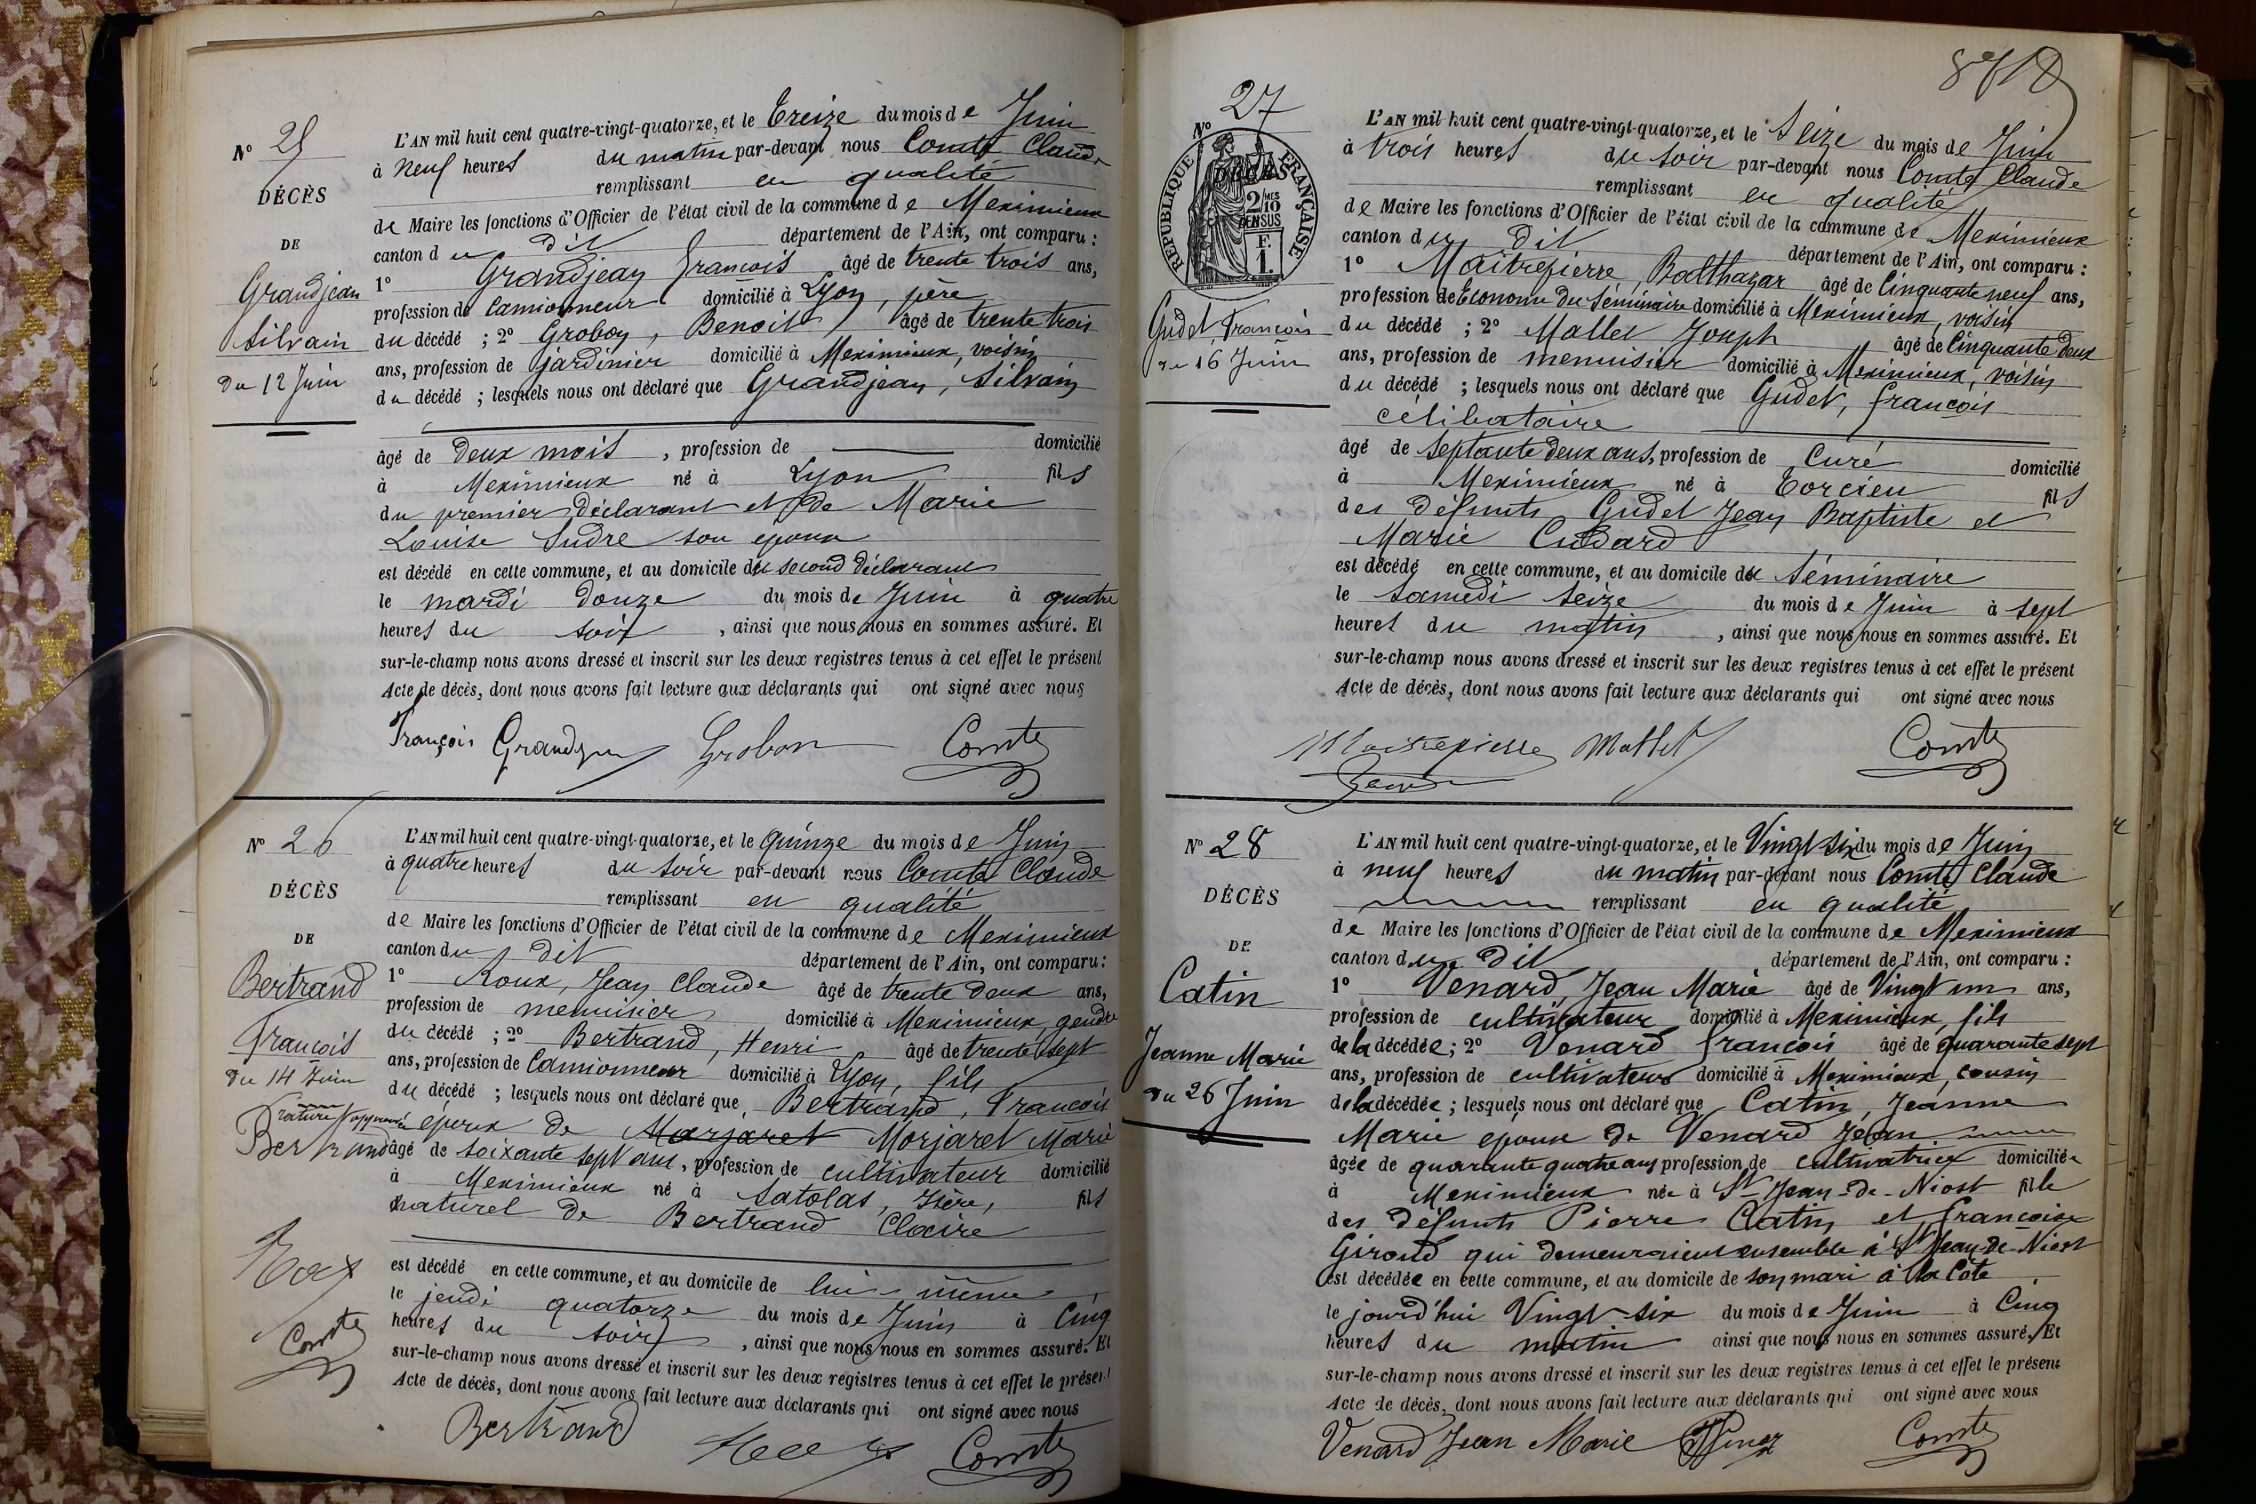 N° 25
DÉCÈS
DE
Grandjean
Silvain
du 12 Juin
L'AN mil huit cent quatre-vingt-quatorze, et le treize du mois de Juin
à neuf heures du matin par-devant nous Comte Claude
remplissant en qualité
de Maire les fonctions d'Officier de l'état civil de la commune de Meximieux
canton du dit département de l'Ain, ont comparu :
1° Grandjean François âgé de trente trois ans,
profession de Camionneur domicilié à Lyon, père
du décédé ; 2° Grobon, Benoit âgé de trente trois
ans, profession de jardinier domicilié à Meximieux, voisin
du décédé ; lesquels nous ont déclaré que Grandjean, Silvain
âgé de deux mois, profession de domicilié
à Meximieux né à Lyon fils
du premier déclarant et de Marie
Louise Sudre son épouse
est décédé en cette commune, et au domicile du second déclarant
le mardi douze du mois de Juin à quatre
heures du soir, ainsi que nous nous en sommes assuré. Et
sur-le-champ nous avons dressé et inscrit sur les deux registres tenus à cet effet le présent
Acte de décès, dont nous avons fait lecture aux déclarants qui ont signé avec nous
François Grandjean Grobon Comte
N° 26
DÉCÈS
DE
Bertrand
François
du 14 Juin
Rature approuvée
Bertrand
Roux
Comte
L'AN mil huit cent quatre-vingt-quatorze, et le quinze du mois de Juin
à quatre heures du soir par-devant nous Comte Claude
remplissant en qualité
de Maire les fonctions d'Officier de l'état civil de la commune de Meximieux
canton du dit département de l'Ain, ont comparu :
1° Roux, Jean Claude âgé de trente deux ans,
profession de menuisier domicilié à Meximieux, gendre
du décédé ; 2° Bertrand, Henri âgé de trente sept
ans, profession de Camionneur domicilié à Lyon, fils
du décédé ; lesquels nous ont déclaré que Bertrand, François
époux de Margaret Morjaret Marie
âgé de soixante sept ans, profession de cultivateur domicilié
à Meximieux né à Satolas, Isère, fils
naturel de Bertrand Claire
est décédé en cette commune, et au domicile de lui-même
le jeudi quatorze du mois de Juin à Cinq
heures du soir, ainsi que nous nous en sommes assuré. Et
sur-le-champ nous avons dressé et inscrit sur les deux registres tenus à cet effet le présent
Acte de décès, dont nous avons fait lecture aux déclarants qui ont signé avec nous
Bertrand Roux Comte
N° 27
RÉPUBLIQUE FRANÇAISE
DÉCÈS
2/10 EN SUS
F. 1.
Gudet, François
du 16 Juin
L'AN mil huit cent quatre-vingt-quatorze, et le Seize du mois de Juin
à trois heures du soir par-devant nous Comte Claude
remplissant en qualité
de Maire les fonctions d'Officier de l'état civil de la commune de Meximieux
canton du dit département de l'Ain, ont comparu :
1° Maitrepierre, Balthazar âgé de Cinquante neuf ans,
profession de Econome du Séminaire domicilié à Meximieux, voisin
du décédé ; 2° Mallet Joseph âgé de Cinquante deux
ans, profession de menuisier domicilié à Meximieux, voisin
du décédé ; lesquels nous ont déclaré que Gudet, François
célibataire
âgé de septante deux ans, profession de Curé domicilié
à Meximieux né à Torcieu fils
des défunts Gudet Jean Baptiste et
Marie Cudard
est décédé en cette commune, et au domicile du Séminaire
le samedi seize du mois de Juin à sept
heures du matin, ainsi que nous nous en sommes assuré. Et
sur-le-champ nous avons dressé et inscrit sur les deux registres tenus à cet effet le présent
Acte de décès, dont nous avons fait lecture aux déclarants qui ont signé avec nous
Maitrepierre Mallet Comte
N° 28
DÉCÈS
DE
Catin
Jeanne Marie
du 26 Juin
L'AN mil huit cent quatre-vingt-quatorze, et le Vingt six du mois de Juin
à neuf heures du matin par-devant nous Comte Claude
remplissant en qualité
de Maire les fonctions d'Officier de l'état civil de la commune de Meximieux
canton du dit département de l'Ain, ont comparu :
1° Venard Jean Marie âgé de Vingt un ans,
profession de cultivateur domicilié à Meximieux, fils
de la décédée ; 2° Venard François âgé de quarante sept
ans, profession de cultivateur domicilié à Meximieux, cousin
de la décédée ; lesquels nous ont déclaré que Catin, Jeanne
Marie épouse de Venard Jean
âgée de quarante quatre ans profession de cultivatrice domiciliée
à Meximieux née à St Jean-de-Niost fille
des défunts Pierre Catin et Françoise
Giroud qui demeuraient ensemble à St Jean-de-Niost
est décédée en cette commune, et au domicile de son mari à la Côte
le jourd'hui Vingt-six du mois de Juin à Cinq
heures du matin ainsi que nous nous en sommes assuré. Et
sur-le-champ nous avons dressé et inscrit sur les deux registres tenus à cet effet le présent
Acte de décès, dont nous avons fait lecture aux déclarants qui ont signé avec nous
Venard Jean Marie Comte